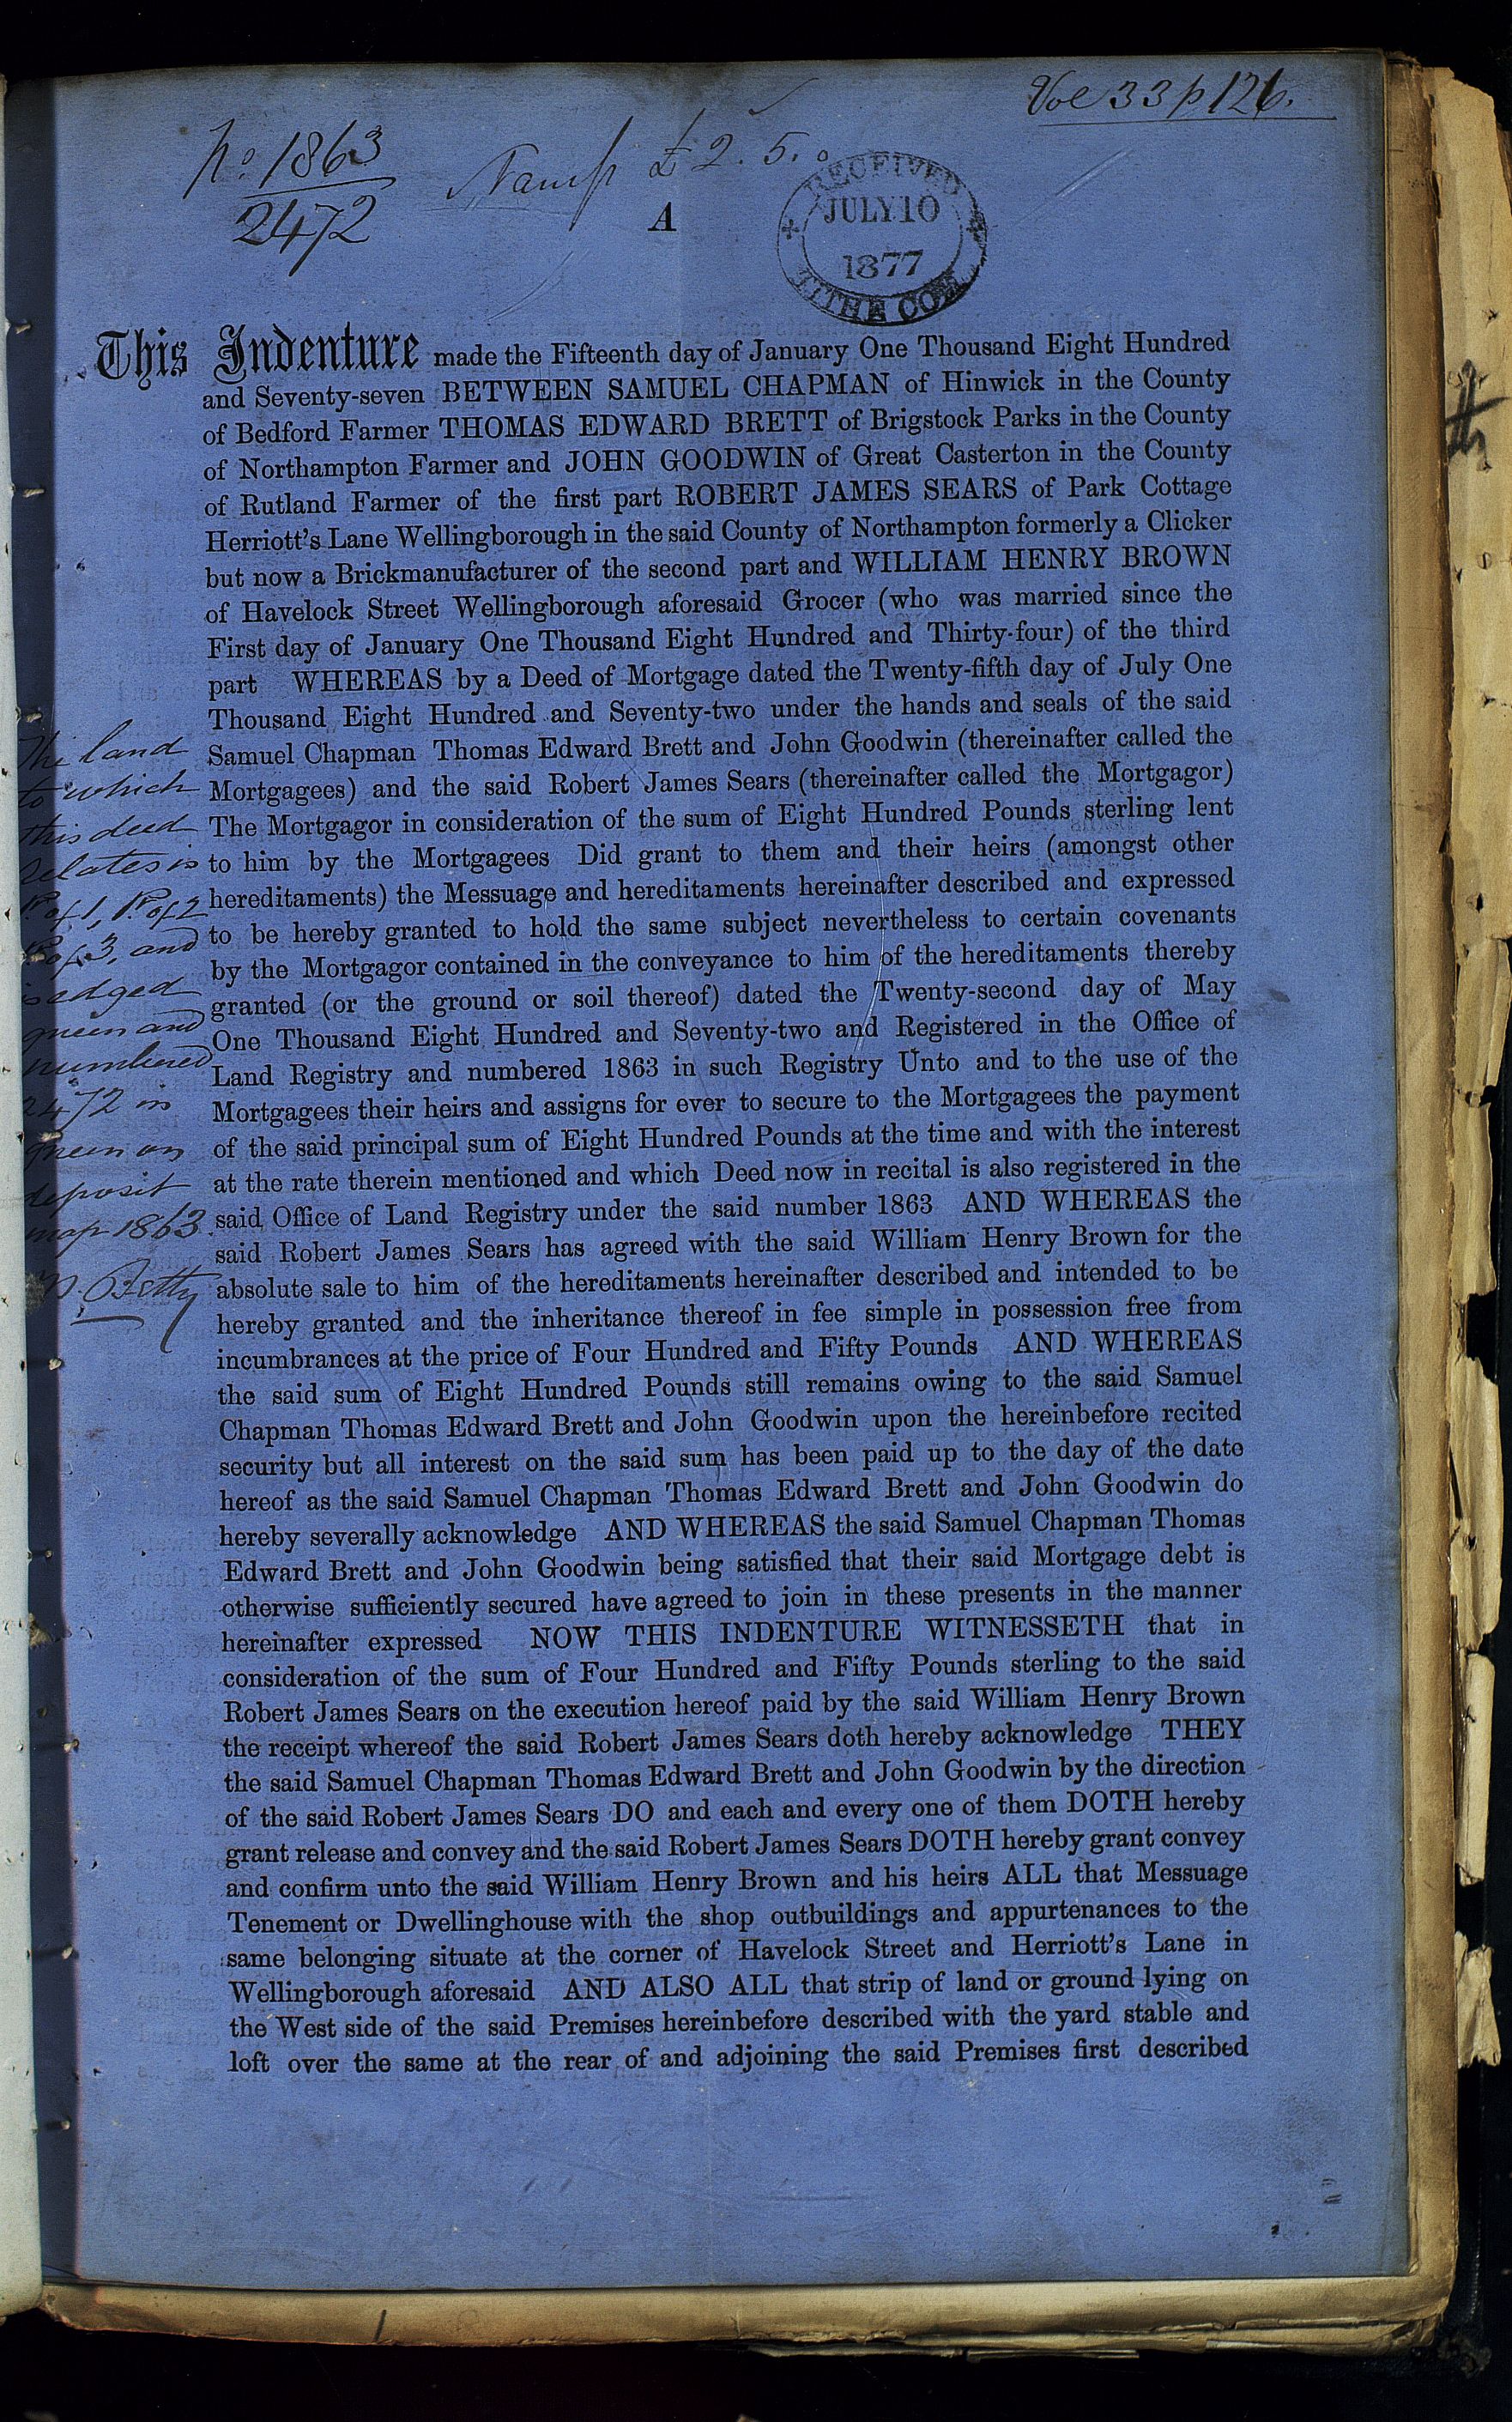 Vol 33 p 126.
No. 1863
2472
Stamp £2. 5. 0
A
RECEIVED
JULY 10
1877
TITHE COM
This Indenture made the Fifteenth day of January One Thousand Eight Hundred
and Seventy-seven BETWEEN SAMUEL CHAPMAN of Hinwick in the County
of Bedford Farmer THOMAS EDWARD BRETT of Brigstock Parks in the County
of Northampton Farmer and JOHN GOODWIN of Great Casterton in the County
of Rutland Farmer of the first part ROBERT JAMES SEARS of Park Cottage
Herriott's Lane Wellingborough in the said County of Northampton formerly a Clicker
but now a Brickmanufacturer of the second part and WILLIAM HENRY BROWN
of Havelock Street Wellingborough aforesaid Grocer (who was married since the
First day of January One Thousand Eight Hundred and Thirty-four) of the third
part WHEREAS by a Deed of Mortgage dated the Twenty-fifth day of July One
Thousand Eight Hundred and Seventy-two under the hands and seals of the said
Samuel Chapman Thomas Edward Brett and John Goodwin (thereinafter called the
Mortgagees) and the said Robert James Sears (thereinafter called the Mortgagor)
The Mortgagor in consideration of the sum of Eight Hundred Pounds sterling lent
to him by the Mortgagees Did grant to them and their heirs (amongst other
hereditaments) the Messuage and hereditaments hereinafter described and expressed
to be hereby granted to hold the same subject nevertheless to certain covenants
by the Mortgagor contained in the conveyance to him of the hereditaments thereby
granted (or the ground or soil thereof) dated the Twenty-second day of May
One Thousand Eight Hundred and Seventy-two and Registered in the Office of
Land Registry and numbered 1863 in such Registry Unto and to the use of the
Mortgagees their heirs and assigns for ever to secure to the Mortgagees the payment
of the said principal sum of Eight Hundred Pounds at the time and with the interest
at the rate therein mentioned and which Deed now in recital is also registered in the
said Office of Land Registry under the said number 1863 AND WHEREAS the
said Robert James Sears has agreed with the said William Henry Brown for the
absolute sale to him of the hereditaments hereinafter described and intended to be
hereby granted and the inheritance thereof in fee simple in possession free from
incumbrances at the price of Four Hundred and Fifty Pounds AND WHEREAS
the said sum of Eight Hundred Pounds still remains owing to the said Samuel
Chapman Thomas Edward Brett and John Goodwin upon the hereinbefore recited
security but all interest on the said sum has been paid up to the day of the date
hereof as the said Samuel Chapman Thomas Edward Brett and John Goodwin do
hereby severally acknowledge AND WHEREAS the said Samuel Chapman Thomas
Edward Brett and John Goodwin being satisfied that their said Mortgage debt is
otherwise sufficiently secured have agreed to join in these presents in the manner
hereinafter expressed NOW THIS INDENTURE WITNESSETH that in
consideration of the sum of Four Hundred and Fifty Pounds sterling to the said
Robert James Sears on the execution hereof paid by the said William Henry Brown
the receipt whereof the said Robert James Sears doth hereby acknowledge THEY
the said Samuel Chapman Thomas Edward Brett and John Goodwin by the direction
of the said Robert James Sears DO and each and every one of them DOTH hereby
grant release and convey and the said Robert James Sears DOTH hereby grant convey
and confirm unto the said William Henry Brown and his heirs ALL that Messuage
Tenement or Dwellinghouse with the shop outbuildings and appurtenances to the
same belonging situate at the corner of Havelock Street and Herriott's Lane in
Wellingborough aforesaid AND ALSO ALL that strip of land or ground lying on
the West side of the said Premises hereinbefore described with the yard stable and
loft over the same at the rear of and adjoining the said Premises first described
The land
to which
this deed
relates is
Pt of 1, Pt of 2
Pt of 3, and
is edged
green and
numbered
2472 in
green on
deposit
map 1863.
Betty